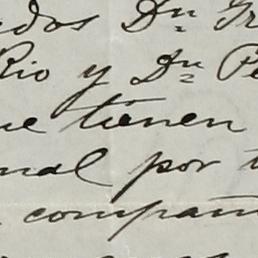 edos Dn Fr
Rio y Dn Pe
ue tienen
nal por t
compañ